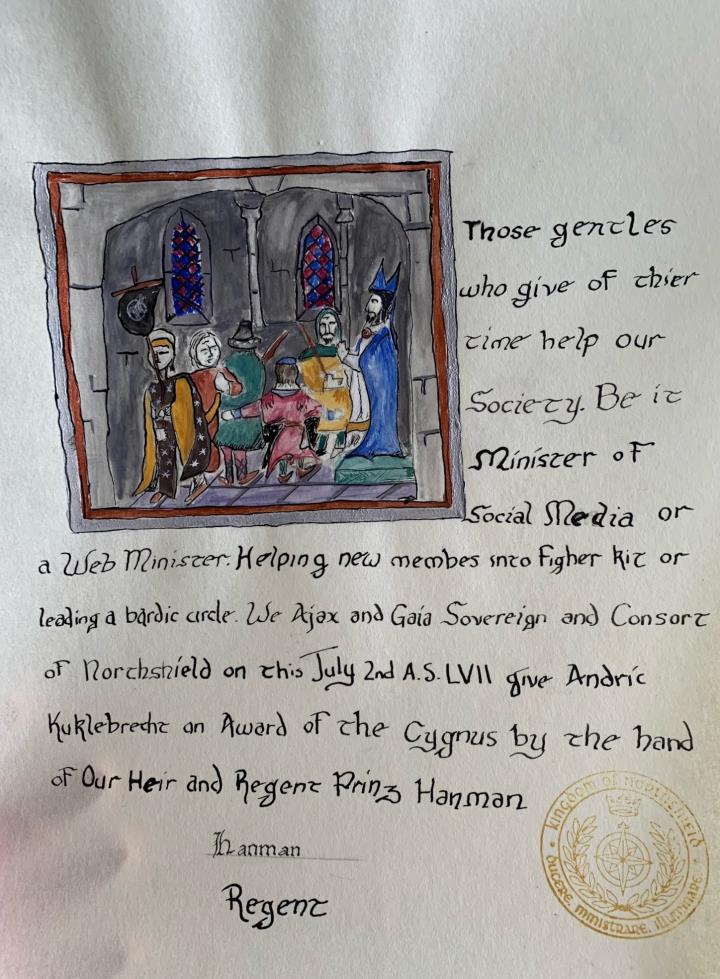 Those gentles
who give of thier
time help our
Society. Be it
Minister of
Social Media or
a Web Minister. Helping new membes into Figher kit or
leading a bardic circle. We Ajax and Gaia Sovereign and Consort
of Northshield on this July 2nd A.S. LVII give Andric
Kuklebrecht an Award of the Cygnus by the hand
of Our Heir and Regent Prinz Hanman
Hanman
Regent
Kingdom of Northshield
Ducere, Ministrare, Illuminare